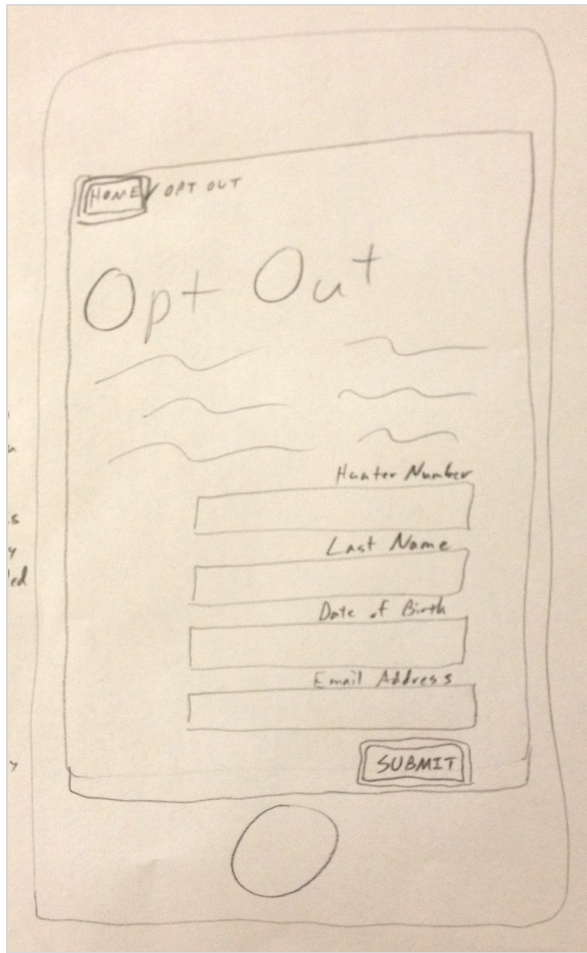 HOME / OPT OUT
Opt Out
Hunter Number
Last Name
Date of Birth
Email Address
SUBMIT